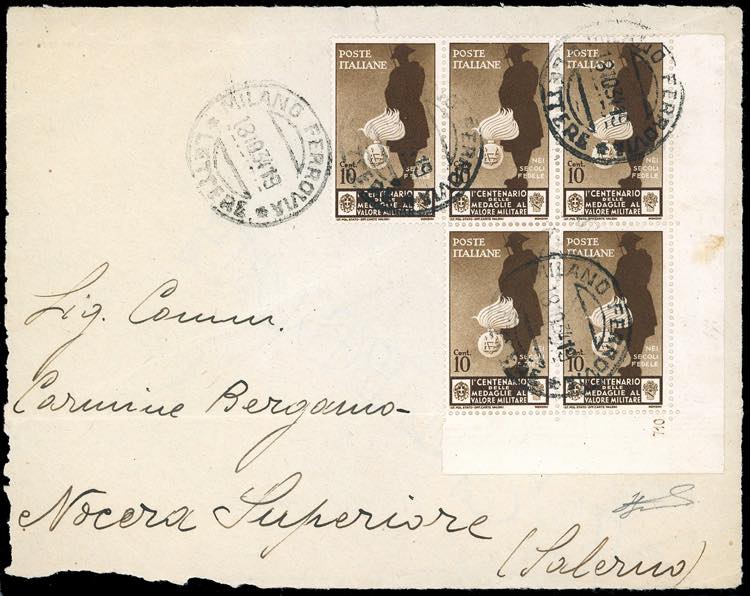 MILANO FERROVIA
18.10.34.19
* LETTERE *
POSTE
ITALIANE
NEI
SECOLI
FEDELE
Cent.
10
I° CENTENARIO
DELLE
MEDAGLIE AL
VALORE MILITARE
POSTE
ITALIANE
NEI
SECOLI
FEDELE
Cent.
10
I° CENTENARIO
DELLE
MEDAGLIE AL
VALORE MILITARE
POSTE
ITALIANE
NEI
SECOLI
FEDELE
Cent.
10
I° CENTENARIO
DELLE
MEDAGLIE AL
VALORE MILITARE
POSTE
ITALIANE
NEI
SECOLI
FEDELE
Cent.
10
I° CENTENARIO
DELLE
MEDAGLIE AL
VALORE MILITARE
POSTE
ITALIANE
NEI
SECOLI
FEDELE
Cent.
10
I° CENTENARIO
DELLE
MEDAGLIE AL
VALORE MILITARE
Sig. Comm.
Carmine Bergamo
Nocera Superiore
(Salerno)